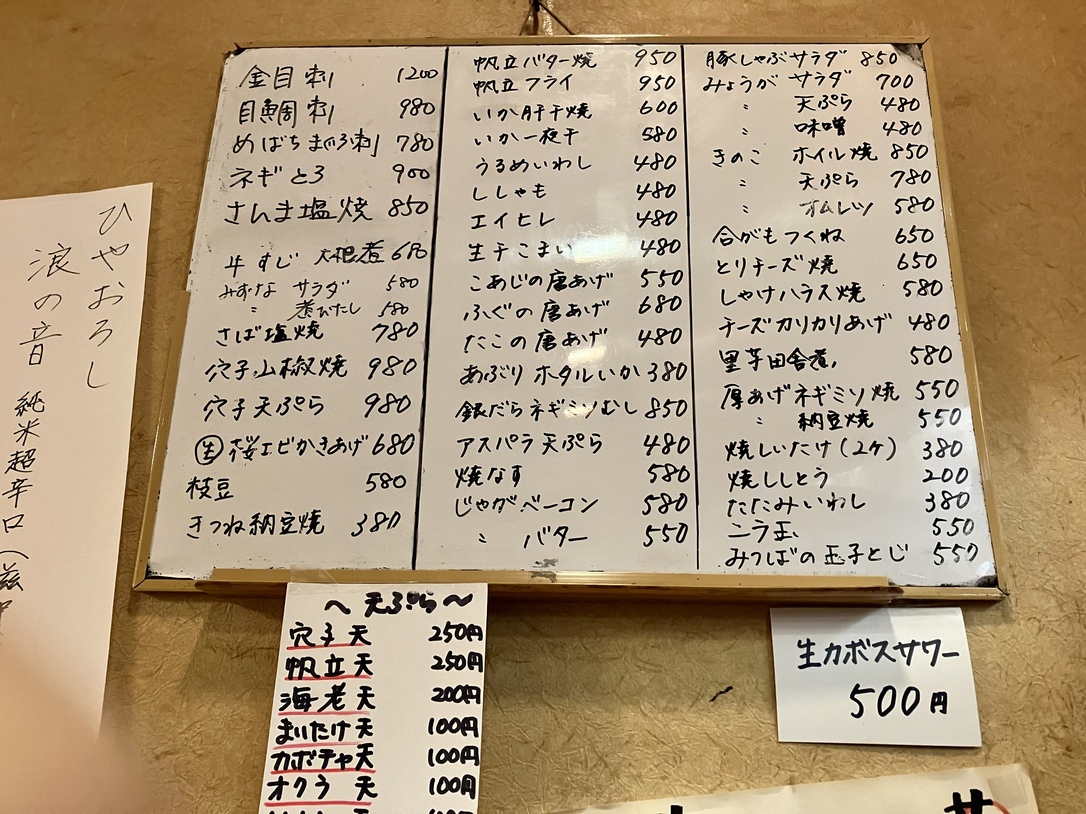 金目刺 1200
目鯛刺 980
めばちまぐろ刺 780
ネギとろ 900
さんま塩焼 850
牛すじ 大根煮 680
みずな サラダ 580
〃 煮びたし 580
さば塩焼 780
穴子山椒焼 980
穴子天ぷら 980
生桜エビかきあげ 680
枝豆 580
きつね納豆焼 380
帆立バター焼 950
帆立フライ 950
いか肝干焼 600
いか一夜干 580
うるめいわし 480
ししゃも 480
エイヒレ 480
生干こまい 480
こあじの唐あげ 550
ふぐの唐あげ 680
たこの唐あげ 480
あぶりホタルいか 380
銀だらネギミソむし 850
アスパラ天ぷら 480
焼なす 580
じゃがベーコン 580
〃 バター 550
豚しゃぶサラダ 850
みょうが サラダ 700
〃 天ぷら 480
〃 味噌 480
きのこ ホイル焼 850
〃 天ぷら 780
〃 オムレツ 580
合がもつくね 650
とりチーズ焼 650
しゃけハラス焼 580
チーズカリカリあげ 480
里芋田舎煮 580
厚あげネギミソ焼 550
〃 納豆焼 550
焼しいたけ(2ケ) 380
焼ししとう 200
たたみいわし 380
ニラ玉 550
みつばの玉子とじ 550
ひやおろし
浪の音
純米超辛口(
〜天ぷら〜
穴子天 250円
帆立天 250円
海老天 200円
まいたけ天 100円
カボチャ天 100円
オクラ天 100円
生カボスサワー
500円